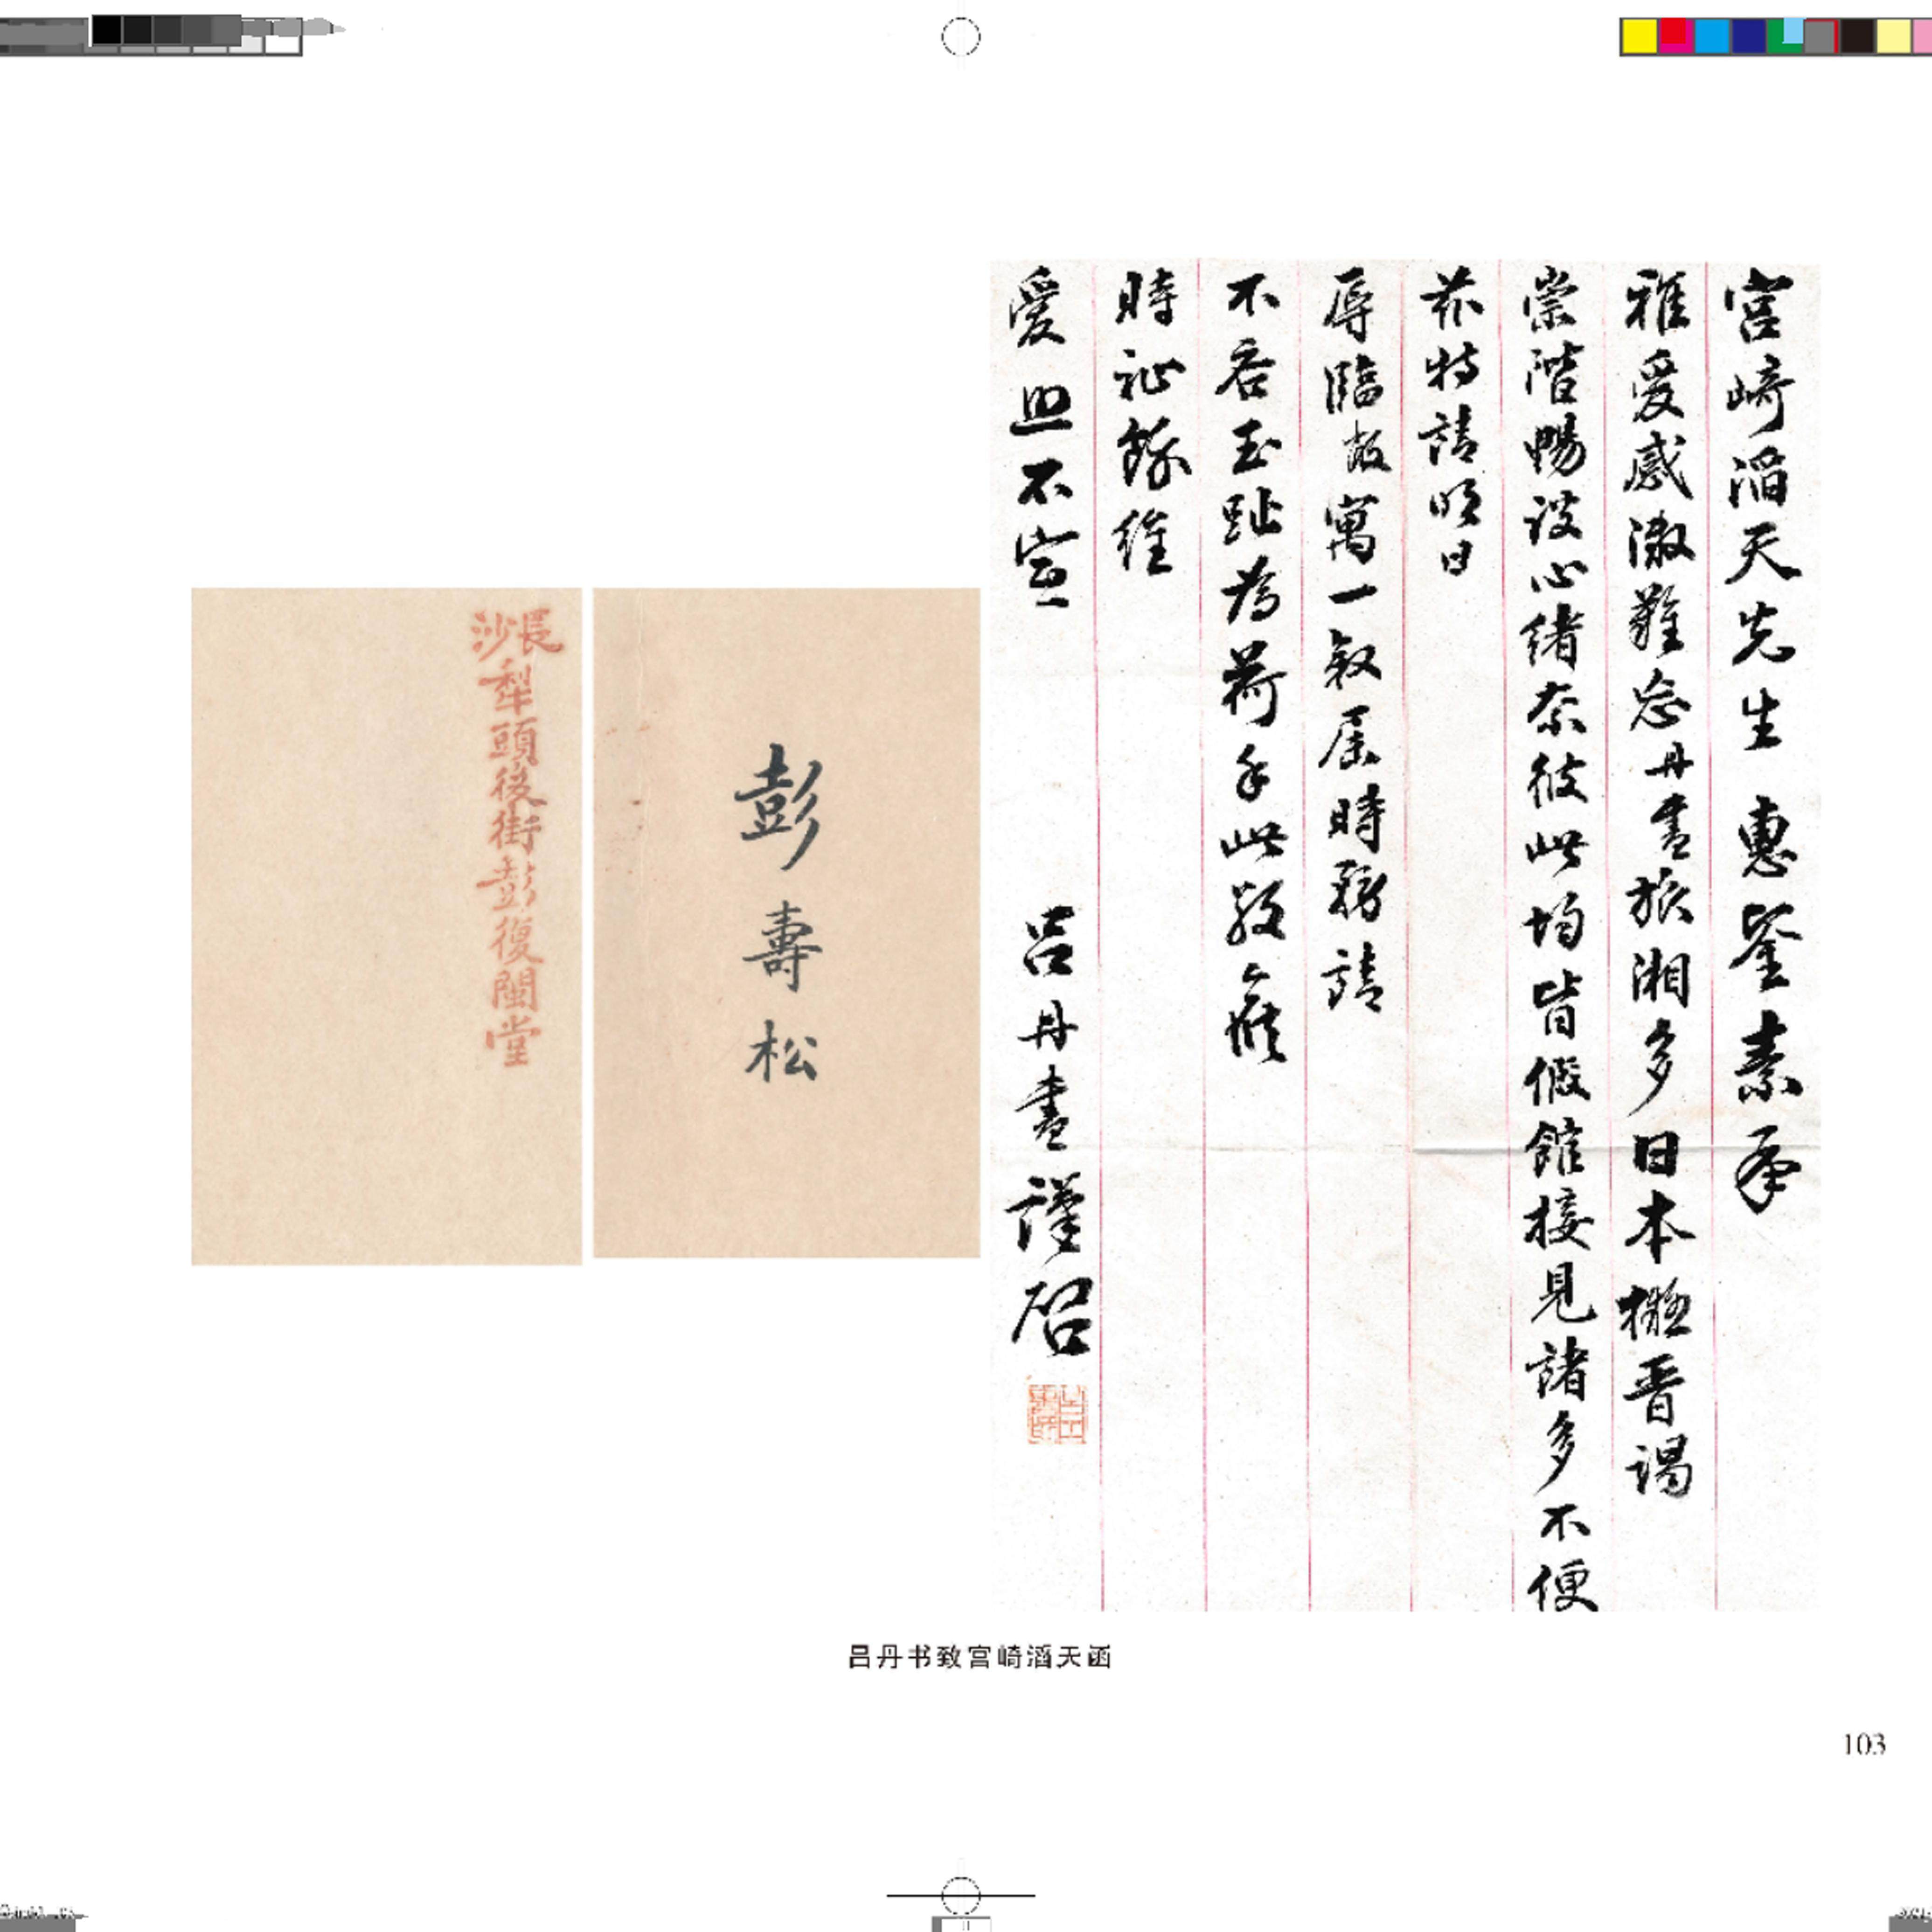 宮崎滔天先生惠鑒素承
雅愛感激難忘丹書旅湘多日本擬晋謁
崇階暢談心緒奈彼此均皆假館接見諸多不便
茲特請明日
辱臨敝寓一敘屆時務請
不吝玉趾為荷手此敬候
時祉餘維
愛照不宣
呂丹書謹啓
彭壽松
長沙犁頭後街彭復閩堂
吕丹书致宫崎滔天函
103